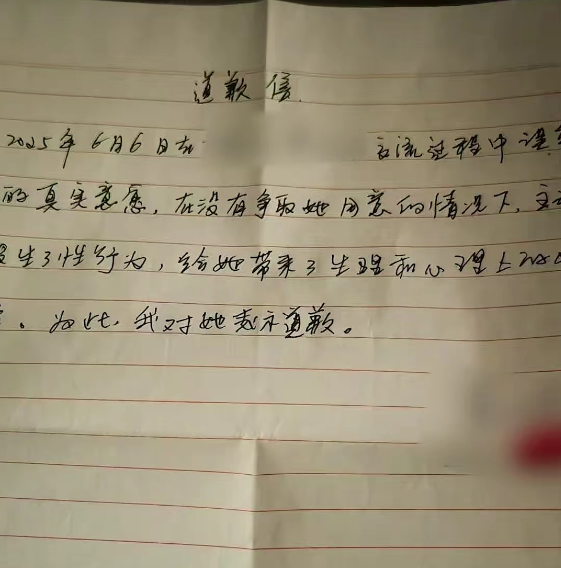 道歉信.
2025年6月6日在 交流过程中误
的真实意愿，在没有争取她同意的情况下，主
发生了性行为，给她带来了生理和心理上的
。为此，我对她表示道歉。